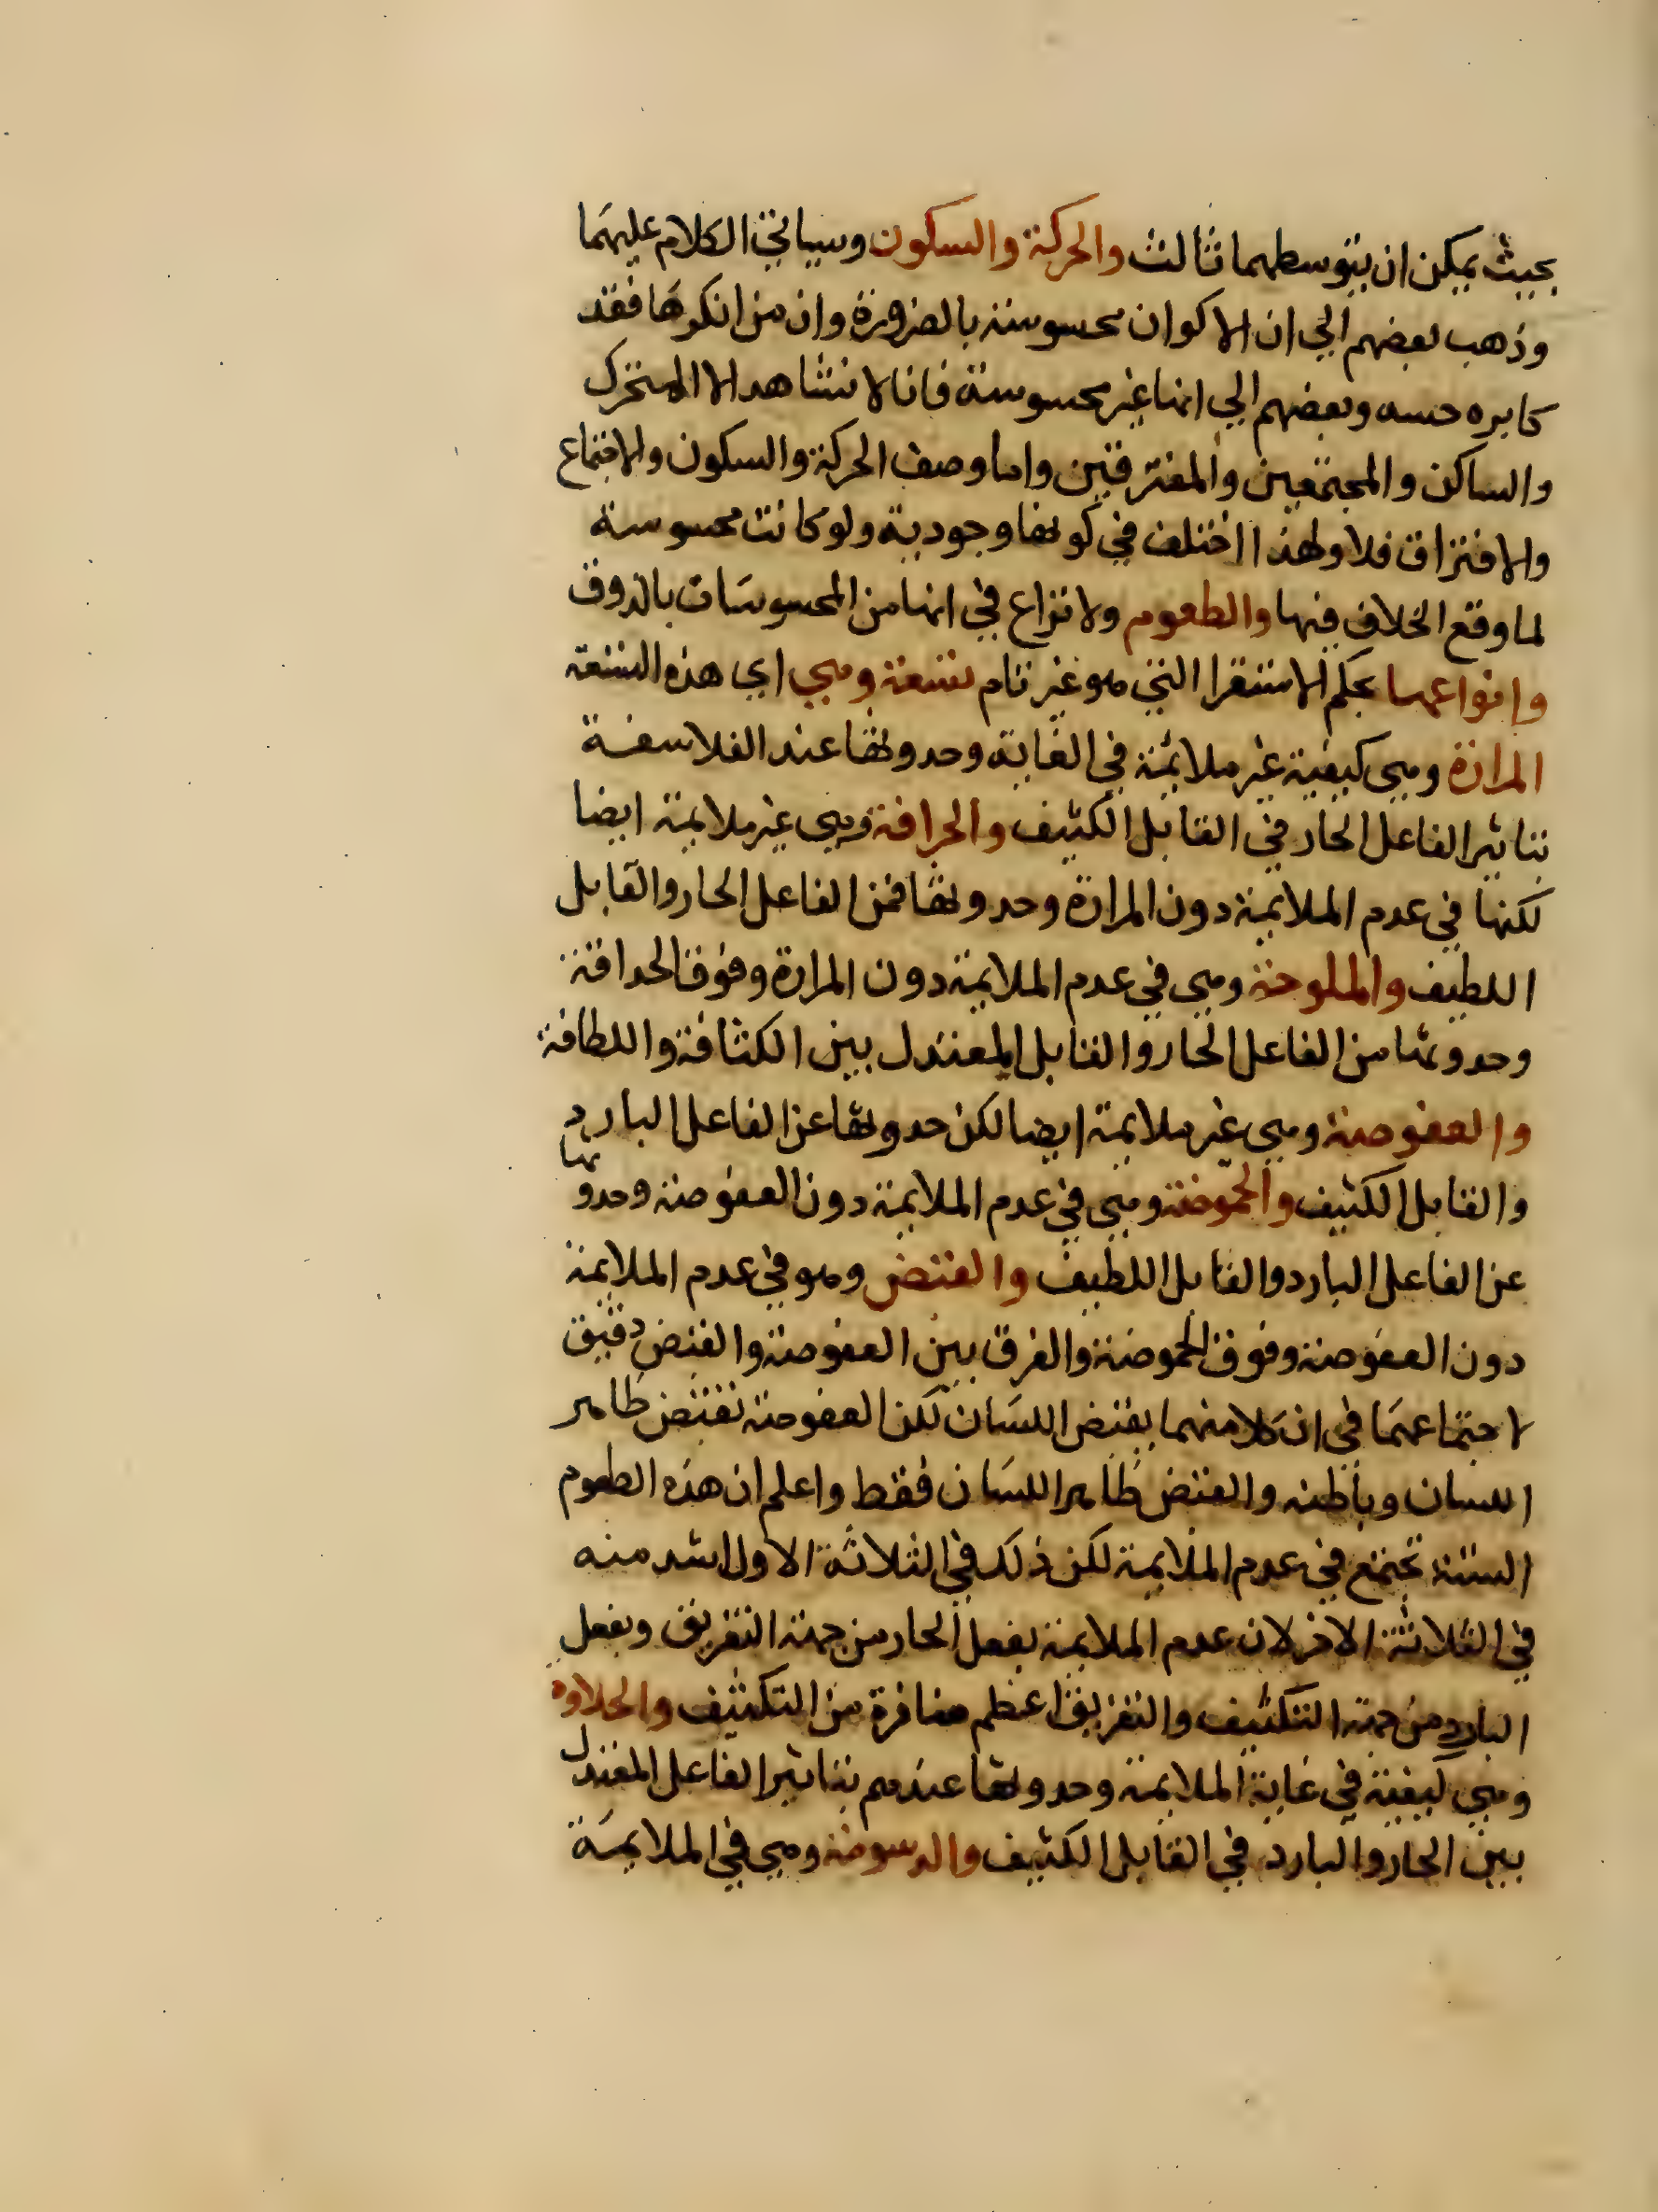 بحيث يمكن ان يتوسطهما ثالث والحركة والسكون وسياتي الكلام عليهما
وذهب بعضهم الي ان الاكوان محسوسة بالضرورة وان من انكرها فقد
كابره حسه وبعضهم الي انها غير محسوسة فانا لا نشاهد الا المتحرك
والساكن والمجتمعين والمفترقين واما وصف الحركة والسكون والاجتماع
والافتراق فلا ولهذا اختلف في كونها وجودية ولو كانت محسوسة
لما وقع الخلاف فيها والطعوم ولا نزاع في انها من المحسوسات بالذوق
وانواعها بحكم الاستقرا الذي هو غير تام تسعة وهي اي هذه التسعة
المرارة وهي كيفية غير ملائمة في الغاية وحدوثها عند الفلاسفة
بتاثير الفاعل الحار في القابل الكثيف والحرافة وهي غير ملايمة ايضا
لكنها في عدم الملايمة دون المرارة وحدوثها فمن الفاعل الحار والقابل
اللطيف والملوحة وهي في عدم الملايمة دون المرارة وفوق الحرافة
وحدوثها من الفاعل الحار والقابل المعتدل بين الكثافة واللطافة
والعفوصة وهي غير ملايمة ايضا لكن حدوثها عن الفاعل البارد
والقابل الكثيف والحموضة وهي في عدم الملايمة دون العفوصة وحدوثها
عن الفاعل البارد والقابل اللطيف والقبض وهو في عدم الملايمة
دون العفوصة وفوق الحموضة والفرق بين العفوصة والقبض دقيق
لاجتماعهما في ان كلا منهما يقبض اللسان لكن العفوصة تقبض ظاهر
اللسان وباطنه والقبض ظاهر اللسان فقط واعلم ان هذه الطعوم
الستة تجتمع في عدم الملايمة لكن ذلك في الثلاثة الاول اشد منه
في الثلاثة الاخر لان عدم الملايمة بفعل الحار من جهة التفريق وبفعل
البارد من جهة التكثيف والتفريق اعظم منافرة من التكثيف والحلاوه
وهي كيفية في غاية الملايمة وحدوثها عندهم بتاثير الفاعل المعتدل
بين الحار والبارد في القابل الكثيف والدسومة وهي في الملايمة